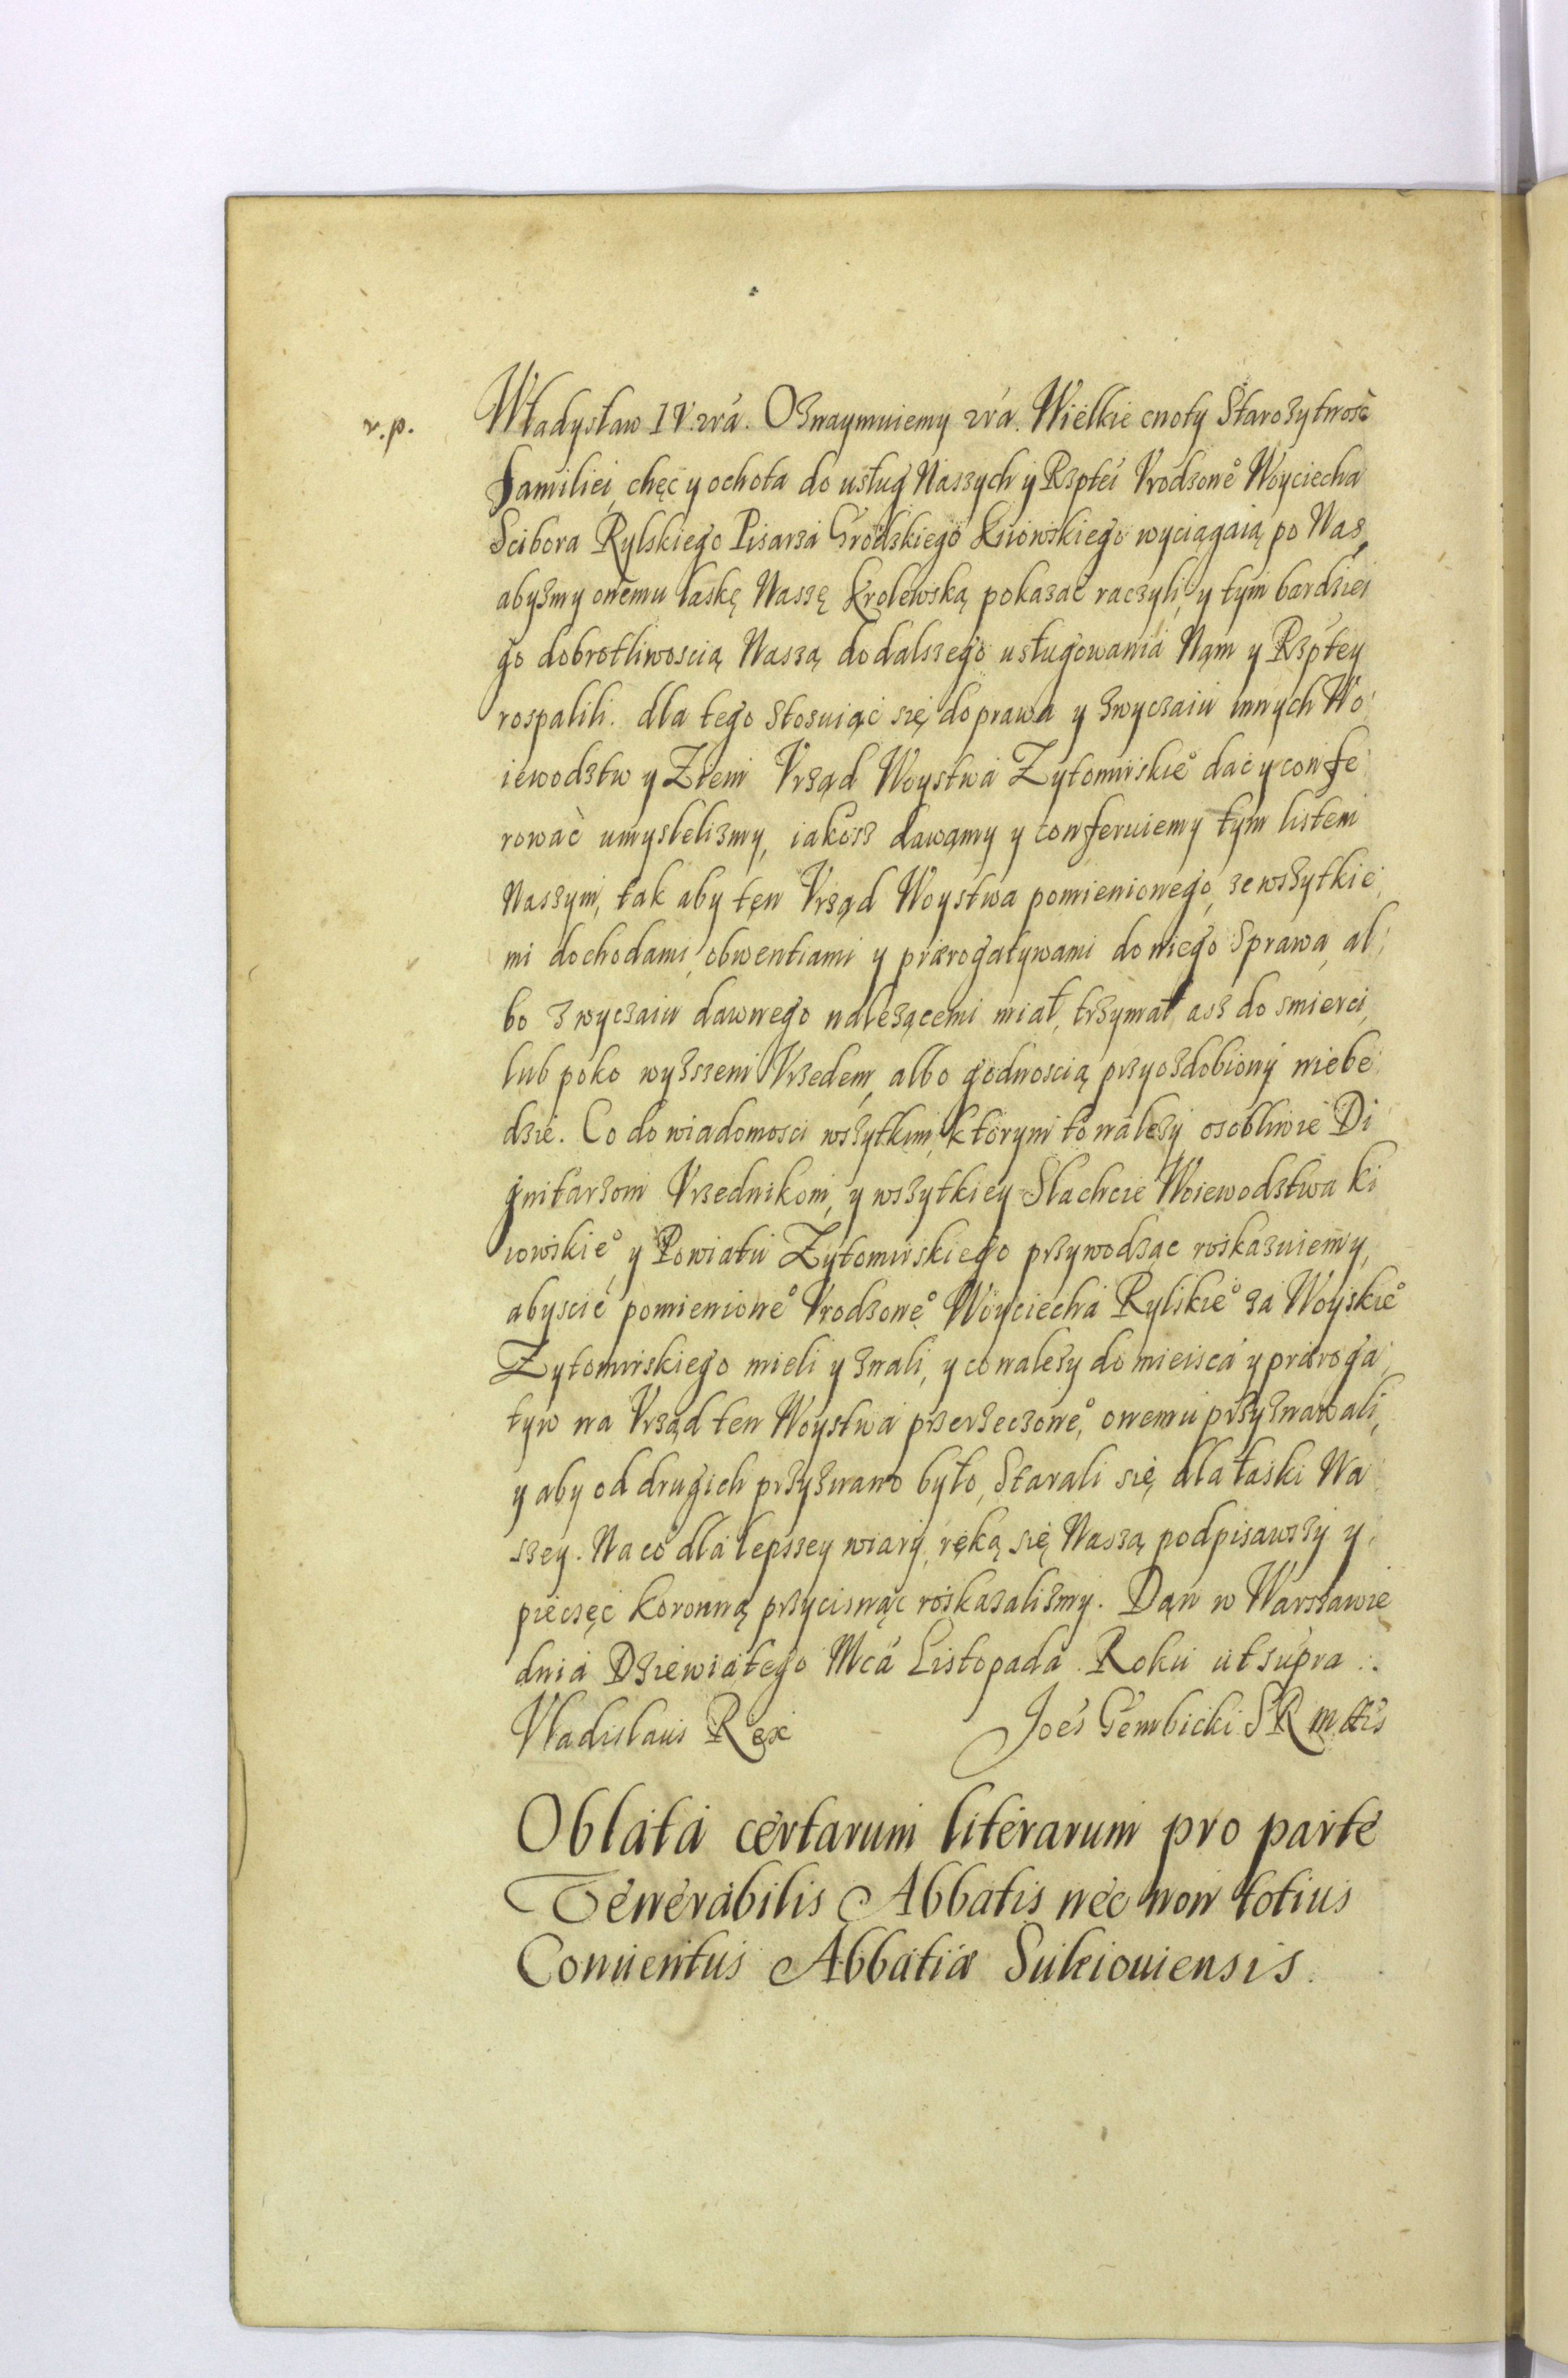 r.p.
Władysław IV. etcá. Oznaymuiemy etcá. Wielkie cnoty Starożytność
Familiei, chęć y ochota do usług Naszych y Rzptéi Vrodzone° Woyciecha
Scibora Rylskiego Pisarza Grodzkiego Kiiowskiego wyciągaią po Nas,
abyzmy onemu łaskę Naszę Krolewską pokazać raczyli, y tym bardziei
go dobrotliwoscią Naszą do dalszego usługowania Nąm y Rzptey
rospalili. dla tego Stosuiąc się do prawa y zwyczaiu innych Wo
iewodztw y Ziem Vrząd Woystwa Zytomirskie° dać y confe
rować umyslelizmy, iakosz dawąmy y conferuiemy tym listem
Naszym, tak aby tęn Vrząd Woystwa pomienionego, ze wszytkie
mi dochodami, obwentiami y prærogatywami do niego Sprawa, al
bo zwyczaiu dawnego należącemi miał, trzymał asz do smierci,
lub poko wyższem Vrzedem, albo godnoscią przyozdobiony niebe
dzie. Co do wiadomosci wszytkim, ktorym to należy osobliwie Di
gnitarzom Vrzednikom, y wszytkiey Slachcie Woiewodztwa Ki
iowskie°, y Powiatu Zytomirskiego przywodząc roskazuiemy,
abyscie pomienione° Vrodzone° Woyciecha Rylskie° za Woyskie°
Zytomirskiego mieli y znali, y co należy do mieisca y præroga
tyw na Vrząd ten Woystwa przerzeczone°, onemu przyznawali,
y aby od drugich przyznano było, Starali się, dla łaski Na
szey. Na co dla lepszey wiary, ręką się Naszą podpisawszy y
pieczęć koronną przycisnąć roskazalizmy. Dąn w Warszawie
dnia Dziewiątego Mcá Listopada Roku ut supra.
Vladislaus Rex Joés Gembicki SR mttis
Oblata certarum literarum pro parte
Venerabilis Abbatis nec non totius
Conuentus Abbatiæ Suleiouiensis.